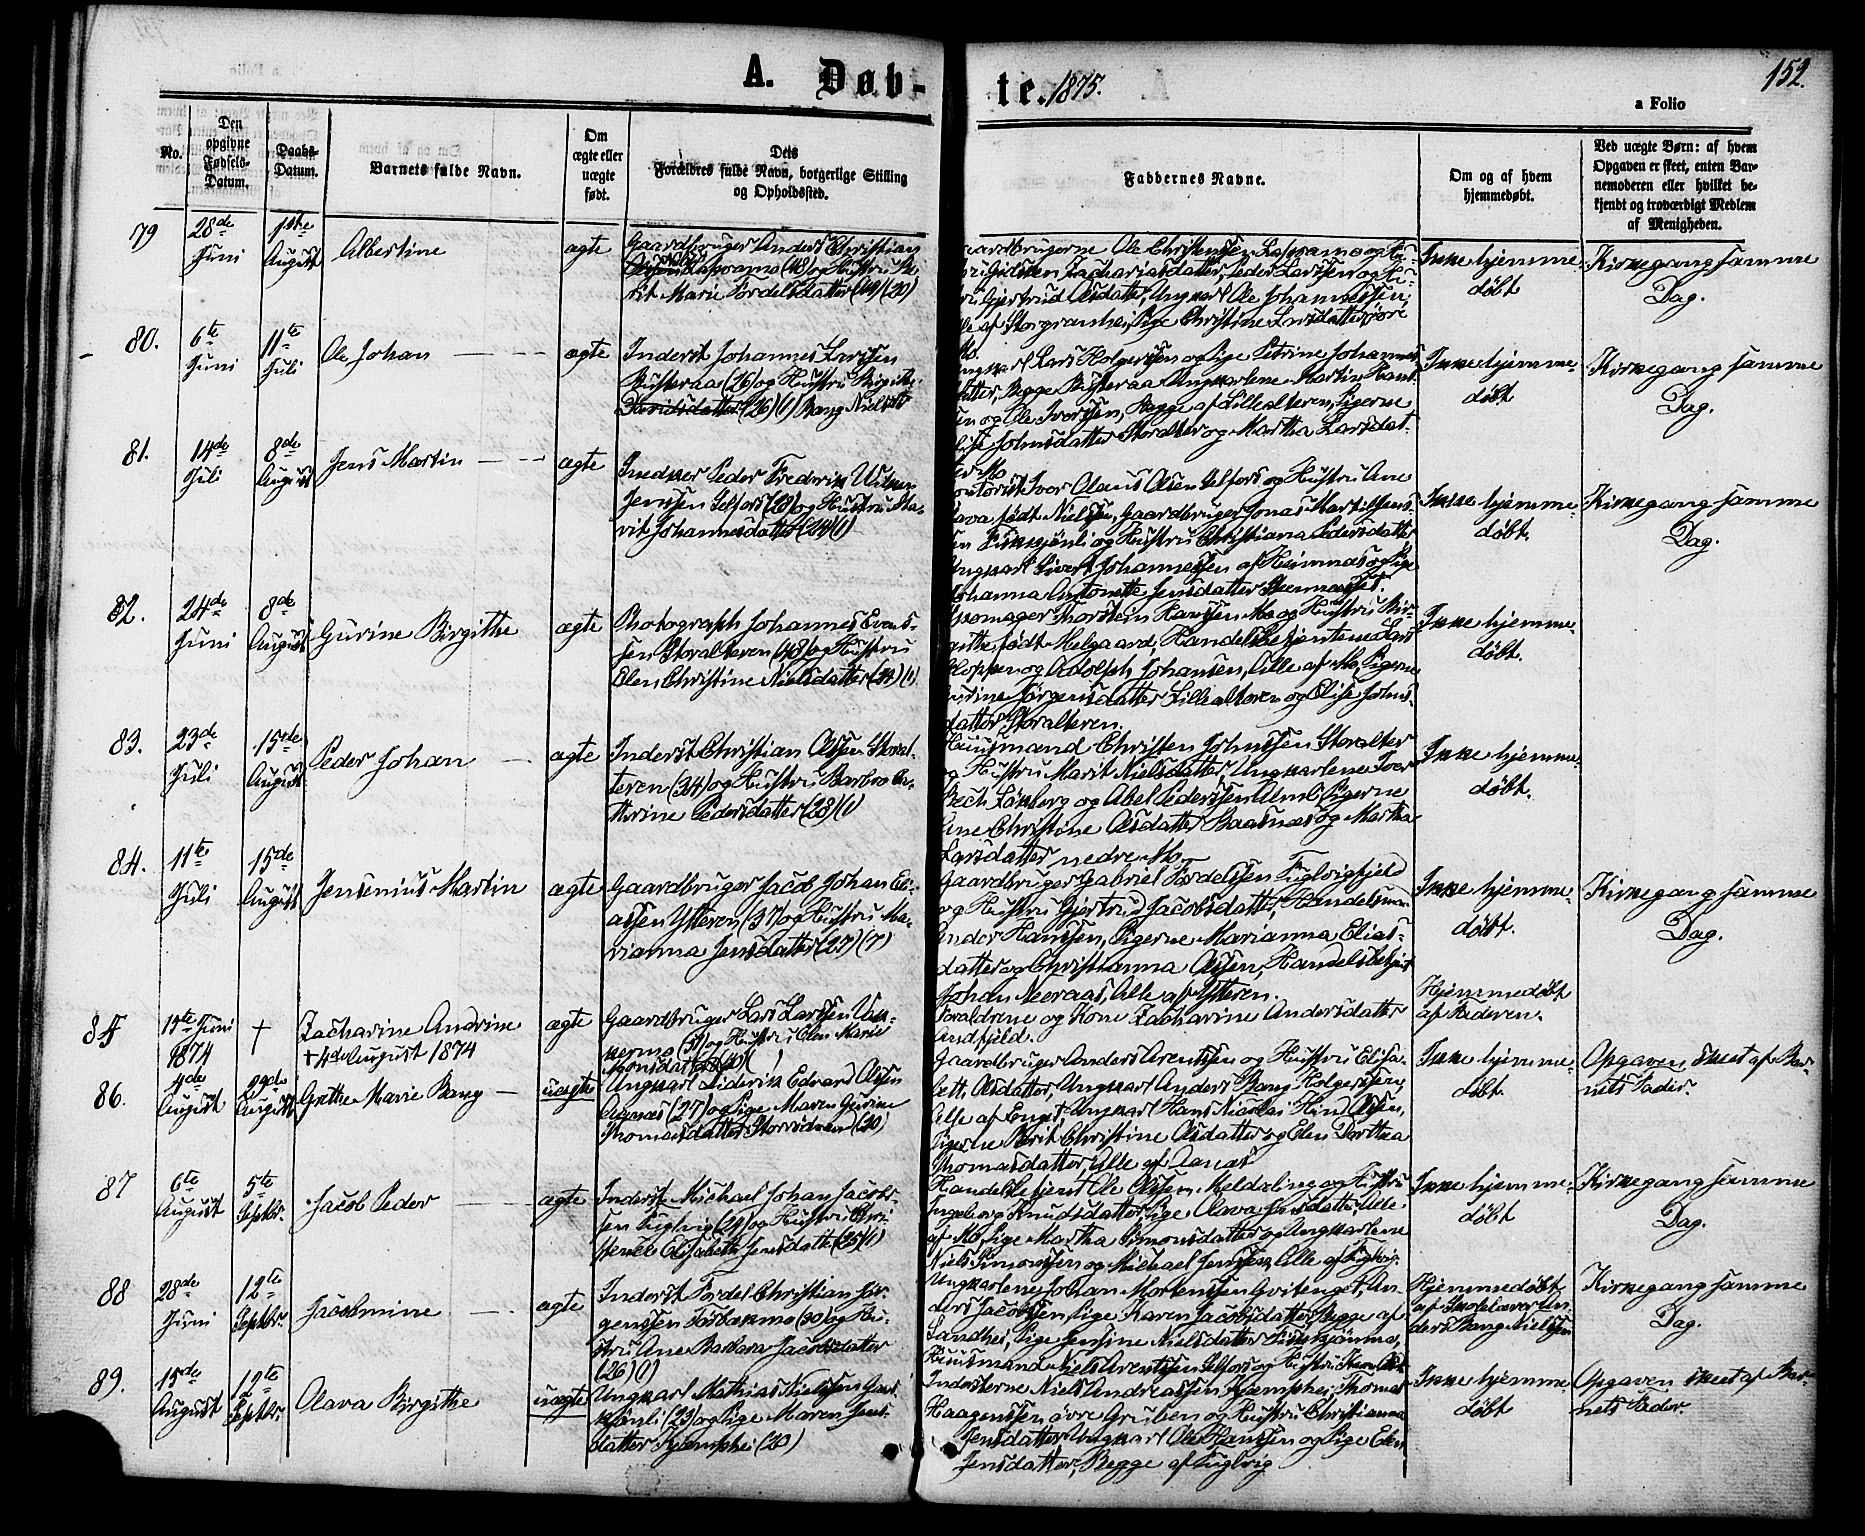 A. Døb-
te. 1875.
152.
a Folio
No.
Den
opgivne
Fødsels-
Datum.
Daabs-
Datum.
Barnets fulde Navn.
Om
ægte eller
uægte
født.
Dets
Forældres fulde Navn, borgerlige Stilling
og Opholdssted.
Faddernes Navne.
Om og af hvem
hjemmedøbt.
Ved uægte Børn: af hvem
Opgaven er skeet, enten Bar-
nemoderen eller hvilket be-
kjendt og troværdigt Medlem
af Menigheden.
79
28de
Juni
1ste
August
Albertine
ægte
Gaardbruger Anders Christian
(48) og Hustru Be-
rit Marie Tordelsdatter (44) (20)
Gaardbrugerne Ole Christensen
Zachariasdatter, Peder Larssen og Hu-
Gjertrud Olsdatter, Ungkarl Ole Johannessen,
Alle af Storgranhei, Pige Christine Larsdatter
Ikke hjemme-
døbt
Kirkegang samme
Dag.
80.
6te
Juni
11te
Juli
Ole Johan
ægte
Inderst Johannes Larssen
Busteraa (26) og Hustru Birgithe
(26) (1) Bang Nielsdtr
Mo.
Ungkarl Lars Holgersen og Pige Petrine Johannes-
datter, Begge Busteraa Ungkarlene Martin Hans-
sen og Ole Iversen, Begge af Lillealteren, Pigerne
Elise Johnsdatter Storalter og Martha Larsdat-
ter Mo
Ikke hjemme-
døbt
Kirkegang samme
Dag.
81.
14de
Juli
8de
August
Jens Martin
ægte
Snedker Peder Frederik
Jenssen Selfors (28) og Hustru Ma-
rit Johannesdatter (24) (1)
Kontorist Iver Olaus Olsen Selfors og Hustru Ane
født Nielsen, Gaardbruger Jonas
og Hustru Christiana Pedersdatter
Ungkarl Sivert Johannessen af Heimnæs og Pige
Johanna Antonette Jensdatter Steennæsset.
Ikke hjemme-
døbt.
Kirkegang samme
Dag.
82.
24de
Juni
8de
August
Gurine Birgithe
ægte
Photograph Johannes Evens-
sen Storalteren (48) og Hustru
Elen Christine Nielsdatter (34) (1)
Skomager Thorstein Hanssen Mo og Hustru Bir-
githe, født Melgaard; Handelsbetjentene Lars
Kloppen og Adolph Johansen, Alle af Mo, Pigerne
Gurine Jørgensdatter Lillealteren og Elise Johns-
datter Storalteren.
Ikke hjemme-
døbt.
83.
23de
Juli
15de
August
Peder Johan
ægte
Inderst Christian Olssen Storal-
teren (34) og Hustru Barbro An-
thrine Pedersdatter (28) (1)
Huusmand Christen Johnssen Storalter
og Hustru Marit Nielsdatter, Ungkarlene Iver
Bech Lønborg og Abel Pederssen Alml. Pigerne
Ane Christine Olsdatter Baasnæs og Martha
Larsdatter nedre Mo.
Ikke hjemme-
døbt.
84.
11te
Juli
15de
August
Jensenius Martin
ægte
Gaardbruger Jacob Johan Eli-
assen Ytteren (37) og Hustru Ma-
rianna Jensdatter (27) (7)
Gaardbruger Gabriel Tordelssen Fuglvigfjeld
og Hustru Gjertrud Jacobsdatter, Handelsman
Andor Hanssen, Pigerne Marianna Elias-
datter og Christianna Olssen, Handelsbetjent
Johan Neeraas, Alle af Ytteren.
Ikke hjemme-
døbt.
Kirkegang samme
Dag.
85
Juni
1874
+
Zacharine Andrine
+ 4de August 1874
ægte
Gaardbruger Lars Larssen
og Hustru Elen Marie
Monsdatter
Forældrene og Kone Zacharine Andersdatter
Andfjeld.
Hjemmedøbt
af Faderen.
86.
4de
August
29de
August
Grethe Marie Bang
uægte
Ungkarl Diderik Edvard Olssen
Aanæs (27) og Pige Maren Gurine
Thomasdatter (30)
Gaardbruger Anders Arentssen og Hustru Elisa-
beth Olsdatter, Ungkarl Anders Bang Holgerssen,
Alle af Enget, Ungkarl Hans Nicolai Hind Olssen,
Pigerne Berit Christine Olsdatter og Elen Dorthea
Thomasdatter, Alle af Aanæs
Ikke hjemme-
døbt.
Opgaven skeet af Bar-
nets Fader.
87
6te
August
5te
Septbr.
Jacob Peder
ægte
Inderst Michael Johan Jacobs-
sen Fuglvig (24) og Hustru
Elisabeth Jensdatter (25) (1)
Handelsbetjent Ole Olssen og Hustru
Ingeborg Knudsdatter, Pige Olava Larsdatter, Alle
af Mo, Pige Martha Simonsdatter og Ungkarlene
Niels Simonssen og Michael Jenssen, Alle af Fuglvig.
Ikke hjemme-
døbt
Kirkegang samme
Dag.
88
28de
Juni
12te
Septbr.
Jacobmine
ægte
Inderst Tordel Christian Jør-
genssen (30) og Hu-
stru Ane Barbara Jacobsdatter
(26) (1)
Ungkarlene Johan Mortenssen Hvitenget, An-
ders Jacobssen, Pige Karen Jacobsdatter, Begge af
Sandhei, Pige Jensine Nielsdatter
Huusmand Niels Arentssen Selfors og Hustru
Hjemmedøbt
af Skolelærer An-
ders Bang Nielssen
Kirkegang samme
Dag.
89.
15de
August
12te
Septbr.
Olava Birgithe
uægte
Ungkarl Mathias Nielssen
(23) og Pige Maren Jens-
datter Kjæmphei (20)
Inderterne Niels Andreassen Kjæmphei, Thomas
Haagenssen øvre Gruben og Hustru Christianna
Jensdatter, Ungkarl Ole Hanssen og Pige Elen
Jensdatter, Begge af Fuglvig
Ikke hjemme-
døbt
Opgaven skeet af Bar-
nets Fader.